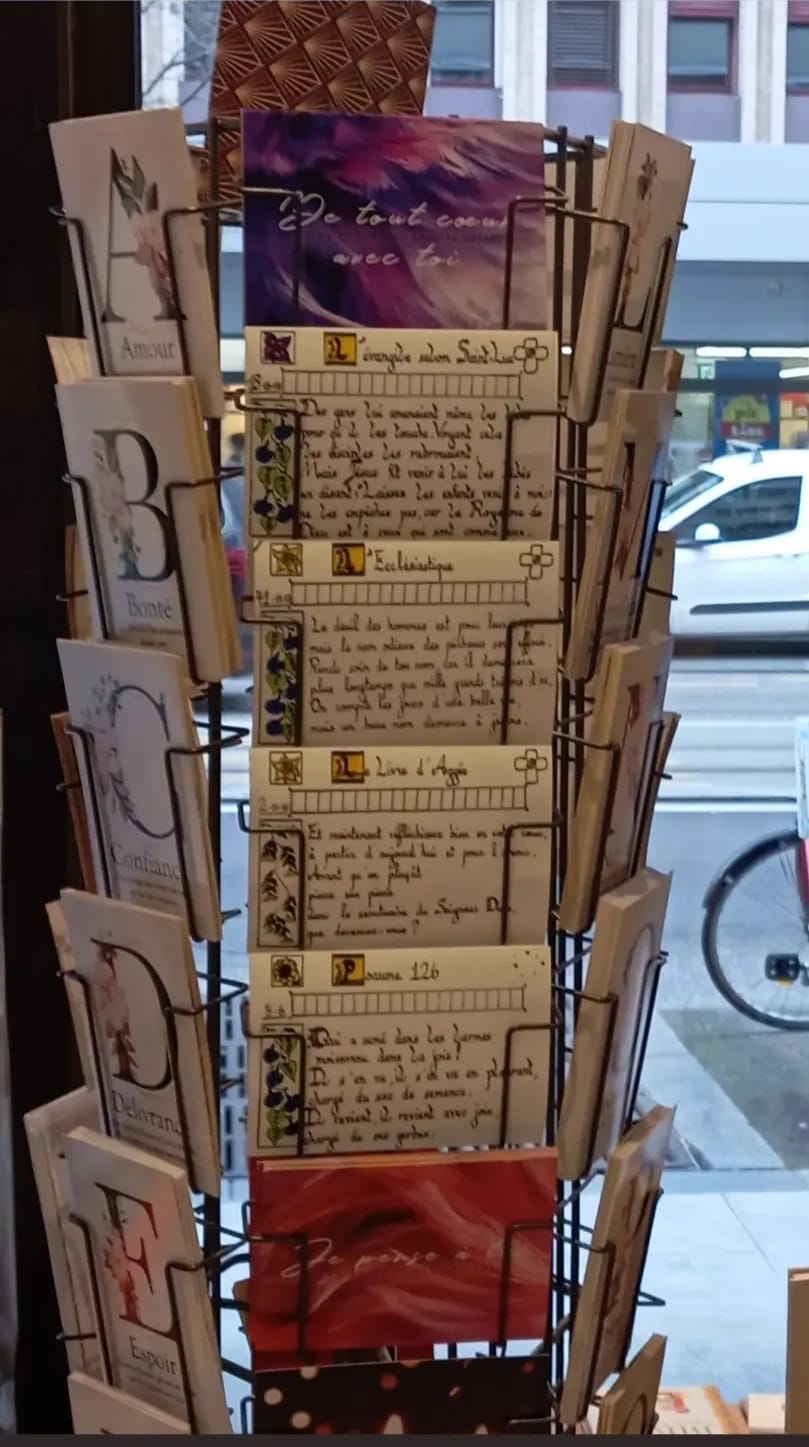 A
Amour
B
Bonté
C
Confianc
D
Délivranc
E
Espoir
De tout coeur
avec toi
L'évangile selon Saint-Luc
Des gens lui amenaient même les bébés
pour qu'il les touche. Voyant cela
les disciples les rabrouaient.
Mais Jésus fit venir à lui les bébés
en disant: "Laissez les enfants venir à moi;
ne les empêchez pas, car le Royaume de
Dieu est à ceux qui sont comme eux.
L'Ecclésiastique
Le deuil des hommes est pour leur
mais le nom des pécheurs
Prends soin de ton nom, car il demeurera
plus longtemps que mille grands trésors d'or.
On compte les jours d'une belle vie,
mais un beau nom demeure à jamais.
Le Livre d'Aggée
Et maintenant réfléchissez bien en votre cœur,
à partir d'aujourd'hui et pour
Avant qu'on plaçât
pierre sur pierre
dans le sanctuaire du Seigneur Dieu,
que deveniez-vous?
Psaume 126
5-6
Qui a semé dans les larmes
moissonne dans la joie!
Il s'en va, il s'en va en pleurant,
chargé du sac de semence.
Il revient, il revient avec joie,
chargé de ses gerbes.
Je pense à
L